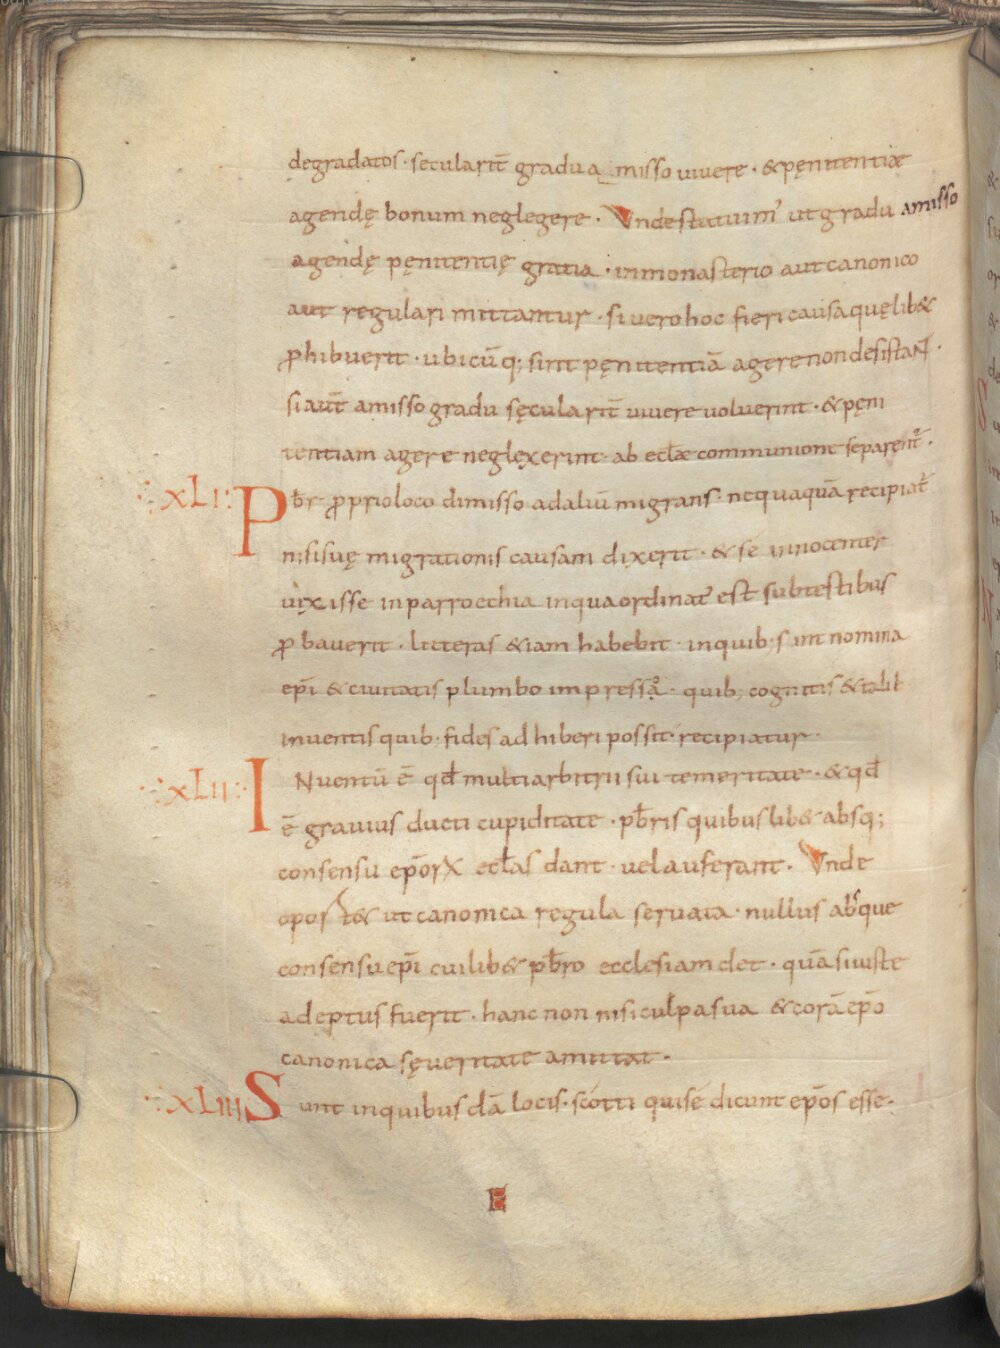 degradatos · seculariť gradu amisso uiuere · &pęnitentiae
agendę bonum neglegere · Vndestatuim' utgradu amisso
agendę pęnitentię gratia · inmonasterio autcanonico
aut regulari mittantur · siuerohoc fiericausaquęlib&
ꝓhibuerit · ubicūq; sint pęnitentiā agerenondesistaNt ·
siaut̄ amissogradu sęculariť uiuere uoluerint · &pęni
tentiam agere neglexerint· ab ecl̄ae communione separent᷑ ·
:XLI: Pb̄r ꝓprioloco dimisso adaliū migrans · nequaquā recipiat᷑
nisisuę migrationis causam dixerit · & se innocenter
uixisse inparrocchia inquaordinat' est subtestibus
ꝓbauerit · litteras &iam habebit · inquib; sint nomina
ep̄i & ciuitatis plumbo impressa · quib; cognitis &talib
inuentis quib· fides adhiberi possit· recipiatur ·
:XLII: INuentū ē qđ multiarbitrii sui temeritate · &qđ
ē grauius ducti cupiditate · pb̄ris quibuslib& absq;
consensu ep̄orꝝ ecl̄as dant · uelauferant · Vnde
oport& ut canonica regula seruata · nullus absque
consensu ep̄i cuilib& pb̄ro ecclesiam det · quāsiiuste
adeptus fuerit · hanc non nisiculpasua & corā ep̄o
canonica sęueritate amittat ·
:XLIII Sunt inquibusdā locis · scotti quise dicunt ep̄os esse ·
E